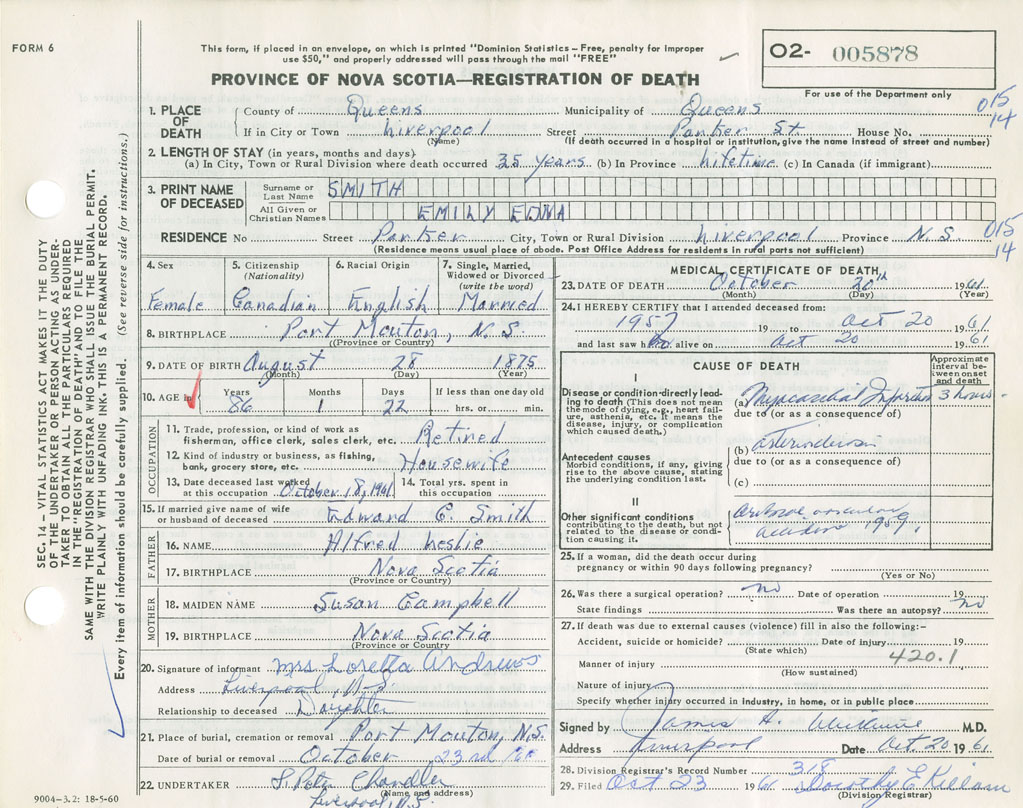 FORM 6
This form, if placed in an envelope, on which is printed "Dominion Statistics – Free, penalty for improper
use $50," and properly addressed will pass through the mail "FREE"
02- 005878
For use of the Department only
PROVINCE OF NOVA SCOTIA—REGISTRATION OF DEATH
015
14
1. PLACE OF DEATH
County of Queens Municipality of Queens
If in City or Town Liverpool Street Parker St. House No.
(Name) (If death occurred in a hospital or institution, give the name instead of street and number)
2. LENGTH OF STAY (in years, months and days)
(a) In City, Town or Rural Division where death occurred 35 years (b) In Province lifetime (c) In Canada (if immigrant)
3. PRINT NAME OF DECEASED
Surname or Last Name SMITH
All Given or Christian Names EMILY EDNA
RESIDENCE No Street Parker City, Town or Rural Division Liverpool Province N.S.
015
14
(Residence means usual place of abode. Post Office Address for residents in rural parts not sufficient)
4. Sex
Female
5. Citizenship (Nationality)
Canadian
6. Racial Origin
English
7. Single, Married, Widowed or Divorced (write the word)
Married
8. BIRTHPLACE Port Mouton, N.S.
(Province or Country)
9. DATE OF BIRTH August 28 1875
(Month) (Day) (Year)
10. AGE in
Years 86
Months 1
Days 22
If less than one day old
hrs. or min.
OCCUPATION
11. Trade, profession, or kind of work as
fisherman, office clerk, sales clerk, etc. Retired
12. Kind of industry or business, as fishing,
bank, grocery store, etc. Housewife
13. Date deceased last worked
at this occupation October 18, 1961
14. Total yrs. spent in
this occupation
15. If married give name of wife
or husband of deceased Edward C. Smith
FATHER
16. NAME Alfred Leslie
17. BIRTHPLACE Nova Scotia
(Province or Country)
MOTHER
18. MAIDEN NAME Susan Campbell
19. BIRTHPLACE Nova Scotia
(Province or Country)
20. Signature of informant Mrs Loretta Andrews
Address Liverpool, N.S.
Relationship to deceased Daughter
21. Place of burial, cremation or removal Port Mouton, N.S.
Date of burial or removal October 23rd
22. UNDERTAKER Chandler
(Name and address)
Liverpool N.S.
9004–3.2: 18-5-60
MEDICAL CERTIFICATE OF DEATH
23. DATE OF DEATH October 20th 1961
(Month) (Day) (Year)
24. I HEREBY CERTIFY that I attended deceased from:
1957 19 to Oct 20 1961
and last saw h alive on Oct 20 1961
CAUSE OF DEATH
Approximate interval between onset and death
I
Disease or condition directly leading to death (This does not mean the mode of dying, e.g., heart failure, asthenia, etc. It means the disease, injury, or complication which caused death.)
(a) Myocardial Infarction 3 hours
due to (or as a consequence of)
Antecedent causes
Morbid conditions, if any, giving rise to the above cause, stating the underlying condition last.
(b)
due to (or as a consequence of)
(c)
II
Other significant conditions
contributing to the death, but not related to the disease or condition causing it.
1959.
25. If a woman, did the death occur during
pregnancy or within 90 days following pregnancy?
(Yes or No)
26. Was there a surgical operation? no Date of operation 19
State findings Was there an autopsy? no
27. If death was due to external causes (violence) fill in also the following:–
Accident, suicide or homicide? Date of injury 19
(State which)
420.1
Manner of injury
(How sustained)
Nature of injury
Specify whether injury occurred in industry, in home, or in public place
Signed by James H. M.D.
Address Liverpool Date Oct. 20 1961
28. Division Registrar's Record Number 318
29. Filed Oct 23 1961 Dorothy E Killam
(Division Registrar)
SEC. 14 – VITAL STATISTICS ACT MAKES IT THE DUTY
OF THE UNDERTAKER OR PERSON ACTING AS UNDER-
TAKER TO OBTAIN ALL THE PARTICULARS REQUIRED
IN THE "REGISTRATION OF DEATH" AND TO FILE THE
SAME WITH THE DIVISION REGISTRAR WHO SHALL ISSUE THE BURIAL PERMIT.
WRITE PLAINLY WITH UNFADING INK. THIS IS A PERMANENT RECORD.
Every item of information should be carefully supplied. (See reverse side for instructions.)